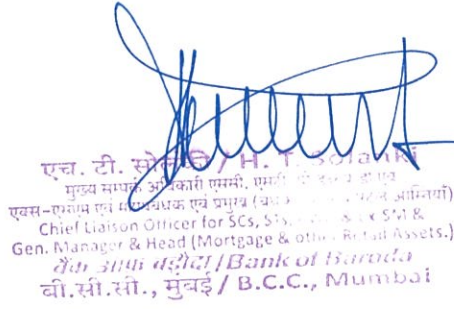 एच. टी. सोलंकी / H. T. Solanki
मुख्य सम्पर्क अधिकारी एससी, एसटी
एवं प्रमुख
Chief Liaison Officer for SCs, STs, & Ex SM &
Gen. Manager & Head (Mortgage & other Retail Assets.)
बैंक ऑफ़ बड़ौदा / Bank of Baroda
बी.सी.सी., मुंबई / B.C.C., Mumbai